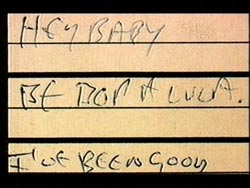 HEY BABY
BE BOP A LULA.
I'VE BEEN GOOD